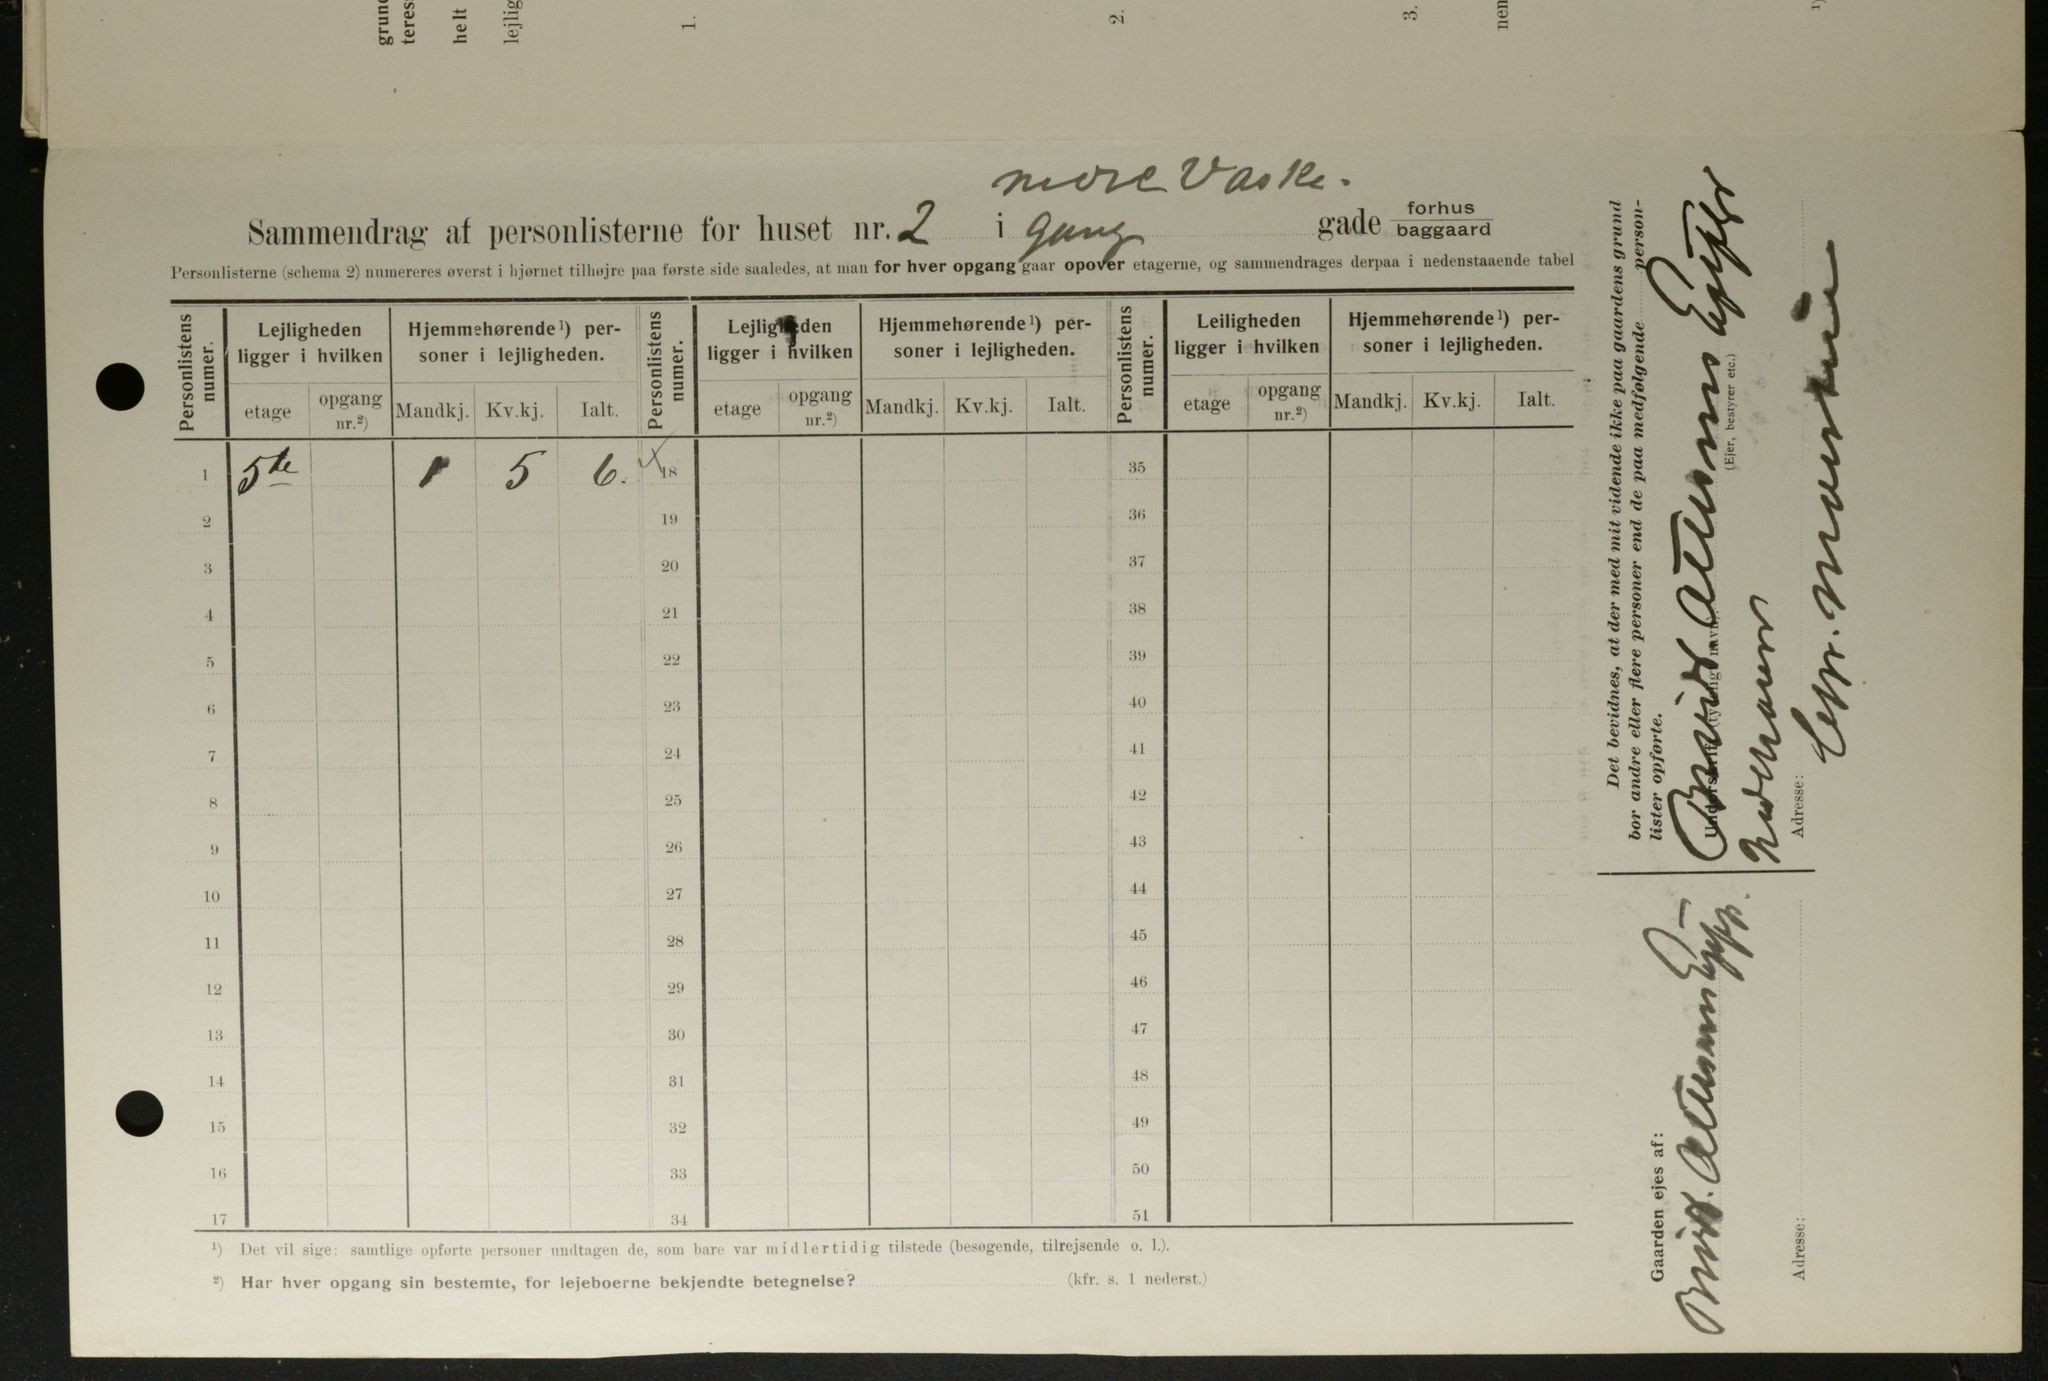 grund
teres
helt
lejlig
1.
2.
3.
nen
1)
nedre Vaske.
Sammendrag af personlisterne for huset nr. 2 i gang gade forhus
baggaard
Personlisterne (schema 2) numereres øverst i hjørnet tilhøjre paa første side saaledes, at man for hver opgang gaar opover etagerne, og sammendrages derpaa i nedenstaaende tabel
Personlistens numer.
Lejligheden ligger i hvilken
Hjemmehørende¹) personer i lejligheden.
etage
opgang nr.²)
Mandkj.
Kv.kj.
Ialt.
Personlistens numer.
Lejligheden ligger i hvilken
Hjemmehørende¹) personer i lejligheden.
etage
opgang nr.²)
Mandkj.
Kv.kj.
Ialt.
Personlistens numer.
Leiligheden ligger i hvilken
Hjemmehørende¹) personer i lejligheden.
etage
opgang nr.²)
Mandkj.
Kv.kj.
Ialt.
1 5te 1 5 6. 18 35
2 19 36
3 20 37
4 21 38
5 22 39
6 23 40
7 24 41
8 25 42
9 26 43
10 27 44
11 28 45
12 29 46
13 30 47
14 31 48
15 32 49
16 33 50
17 34 51
¹) Det vil sige: samtlige opførte personer undtagen de, som bare var midlertidig tilstede (besøgende, tilrejsende o. l.).
²) Har hver opgang sin bestemte, for lejeboerne bekjendte betegnelse? (kfr. s. 1 nederst.)
Det bevidnes, at der med mit vidende ikke paa gaardens grund
bor andre eller flere personer end de paa medfølgende person-
lister opførte.
Underskrift (tydeligt navn):
(Ejer, bestyrer etc.)
Adresse:
Gaarden ejes af:
Adresse: